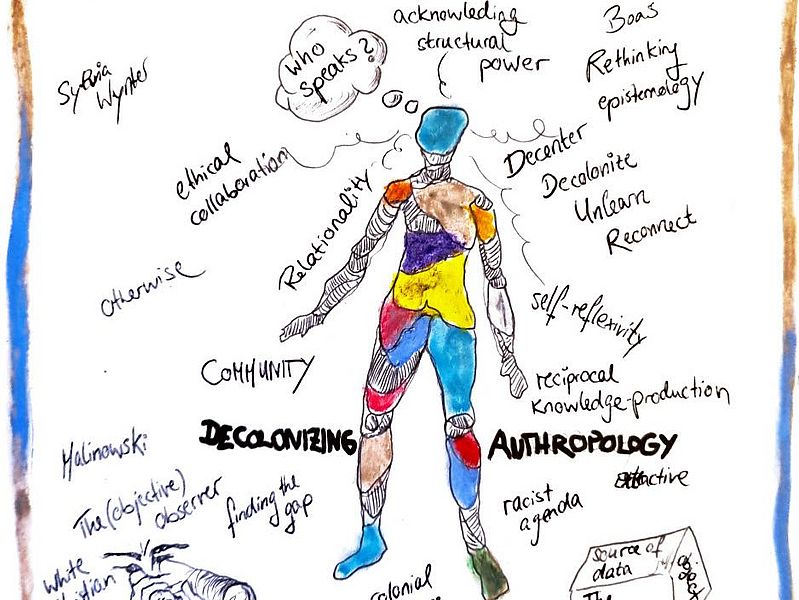 acknowleding
structural
power
Boas
Rethinking
epistemology
who
speaks?
Sylvia
Wynter
ethical
collaboration
Relationality
Decenter
Decolonize
Unlearn
Reconnect
otherwise
self-reflexivity
COMMUNITY
reciprocal
knowledge-production
DECOLONIZING
ANTHROPOLOGY
Malinowski
The (objective)
observer
finding the
gap
racist
agenda
active
white
source of
data
The
object
colonial